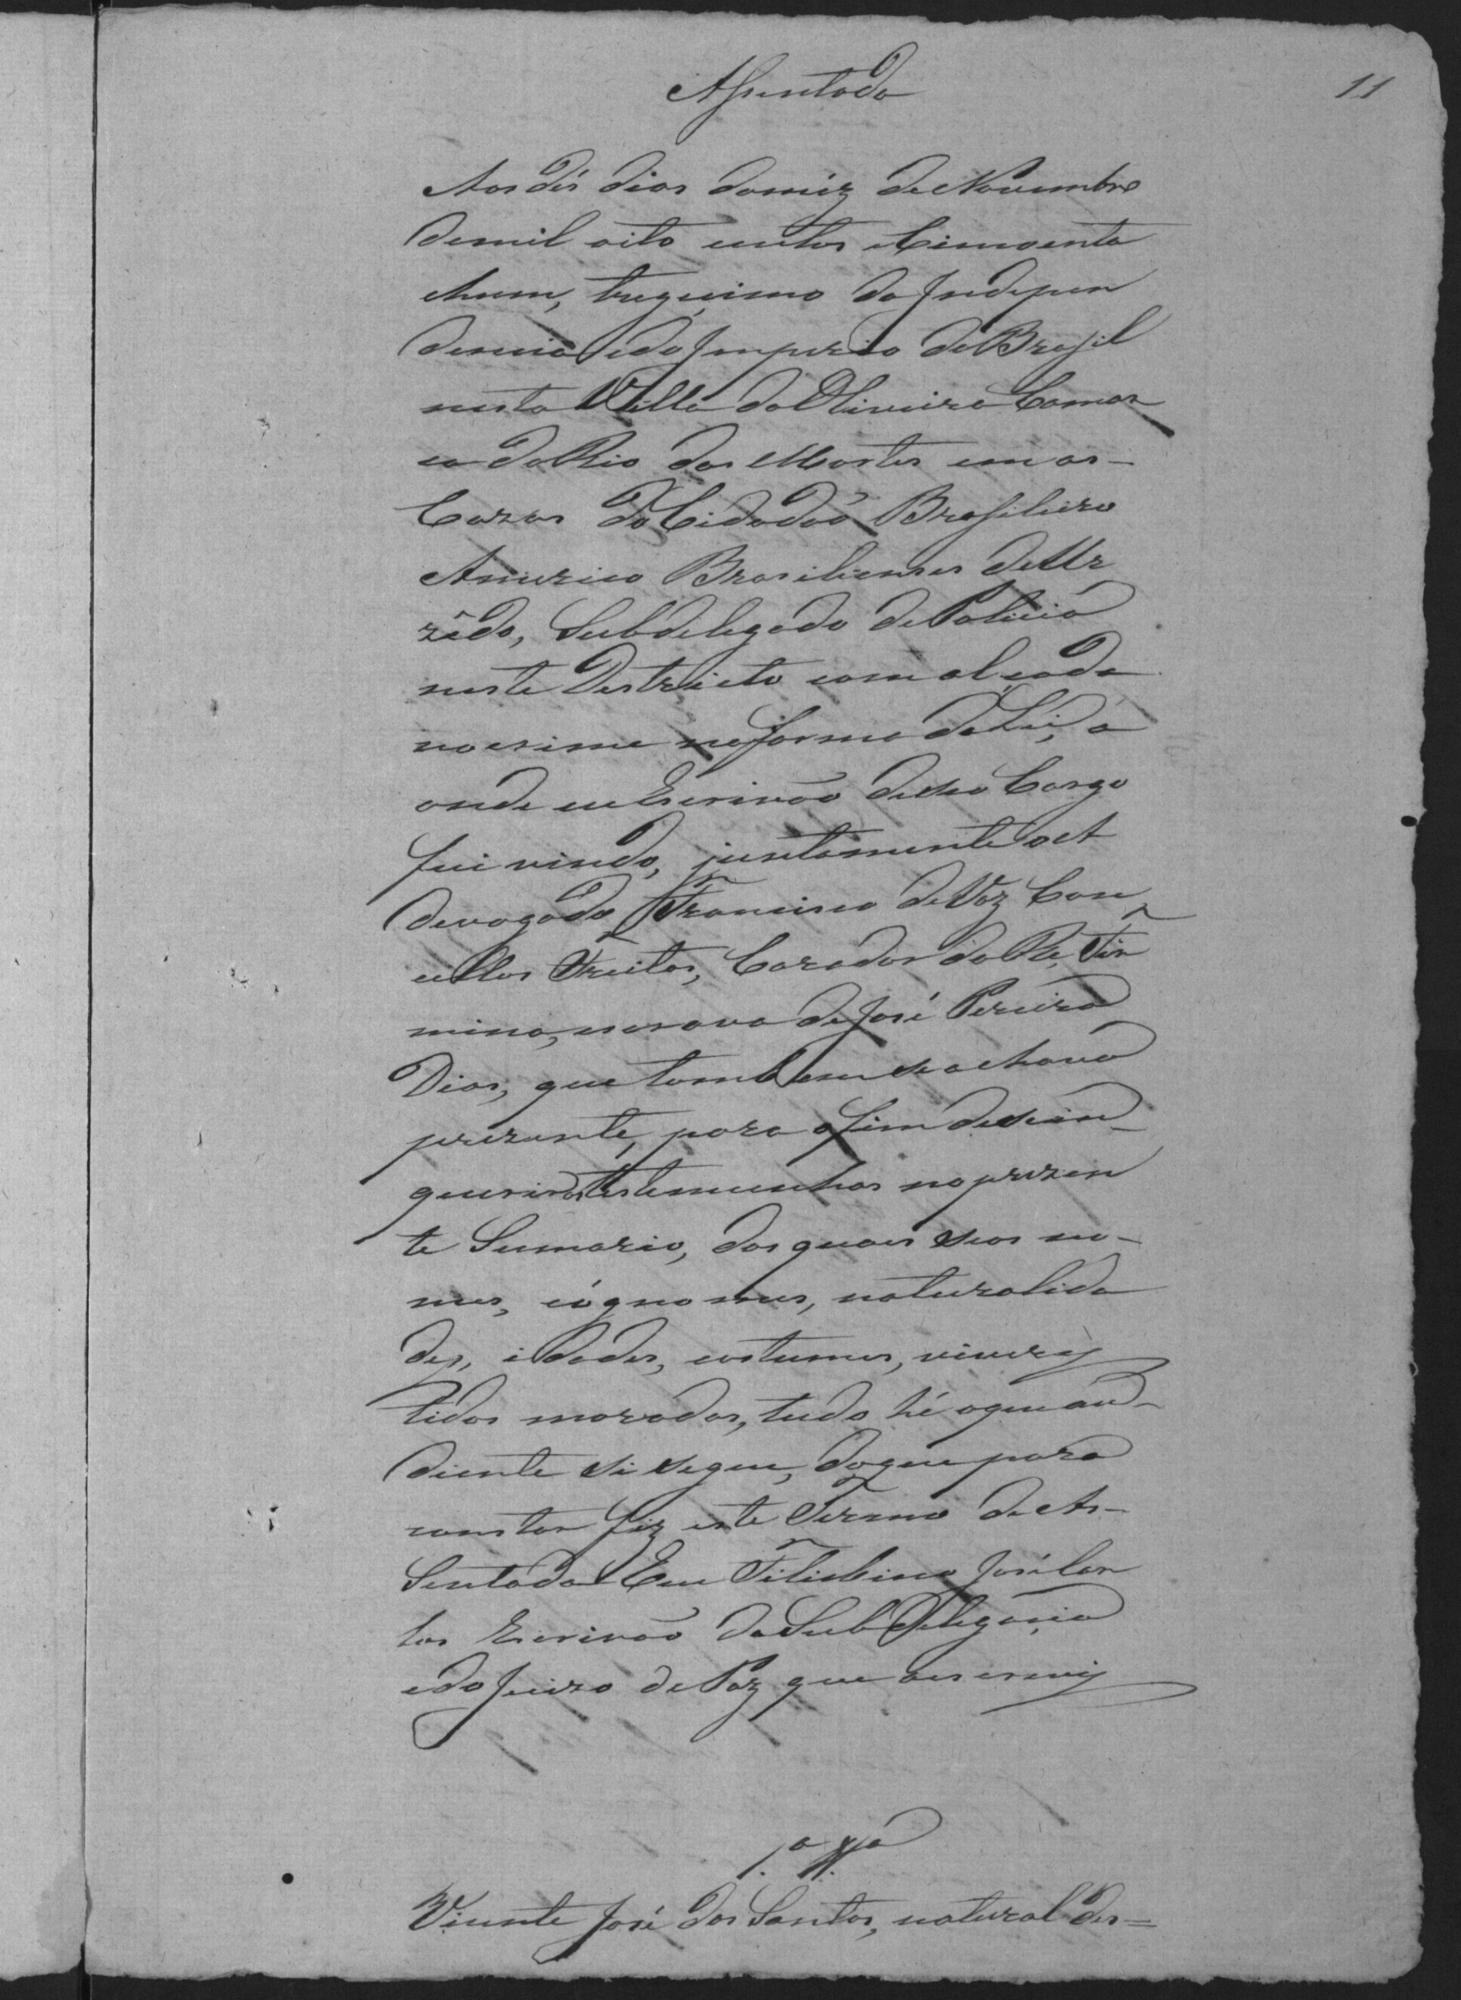 Assentada
11
Aos dés dias do méz de Novembro
de mil oito centos e Cincoenta
e hum, tregecimo da Indepen
dencia e do Imperio do Brasil
nesta Villa da Oliveira Comar
ca do Rio das Mortes em as
Cazas do Cidadaõ Brasileiro
Americo Brasiliense de
Subdelegado de Policia
neste Destricto com alçada
no crime na forma da Lei, a
onde eu Escrivaõ de seo Cargo
fui vindo, juntamente o A
devogado Francisco de Vaz
Freitas, Corador do Re, Fir
mino, escravo de José Pereira
Dias, que tambem se achava
prezente, para o fim de se in
querir as testemunhas no prezen
te Sumario, das quaes seos no-
mes, cógnomes, naturalida
des, idades, costumes, viveres
e moradas, tudo hé o que au
diente se segue, do que para
constar fiz este Termo de As-
sentada Eu Felisbino José
Escrivaõ da SubDelegacia
e do Juizo de Paz que as escrevy
1.ª Tª
Vicente José dos Santos, natural des=